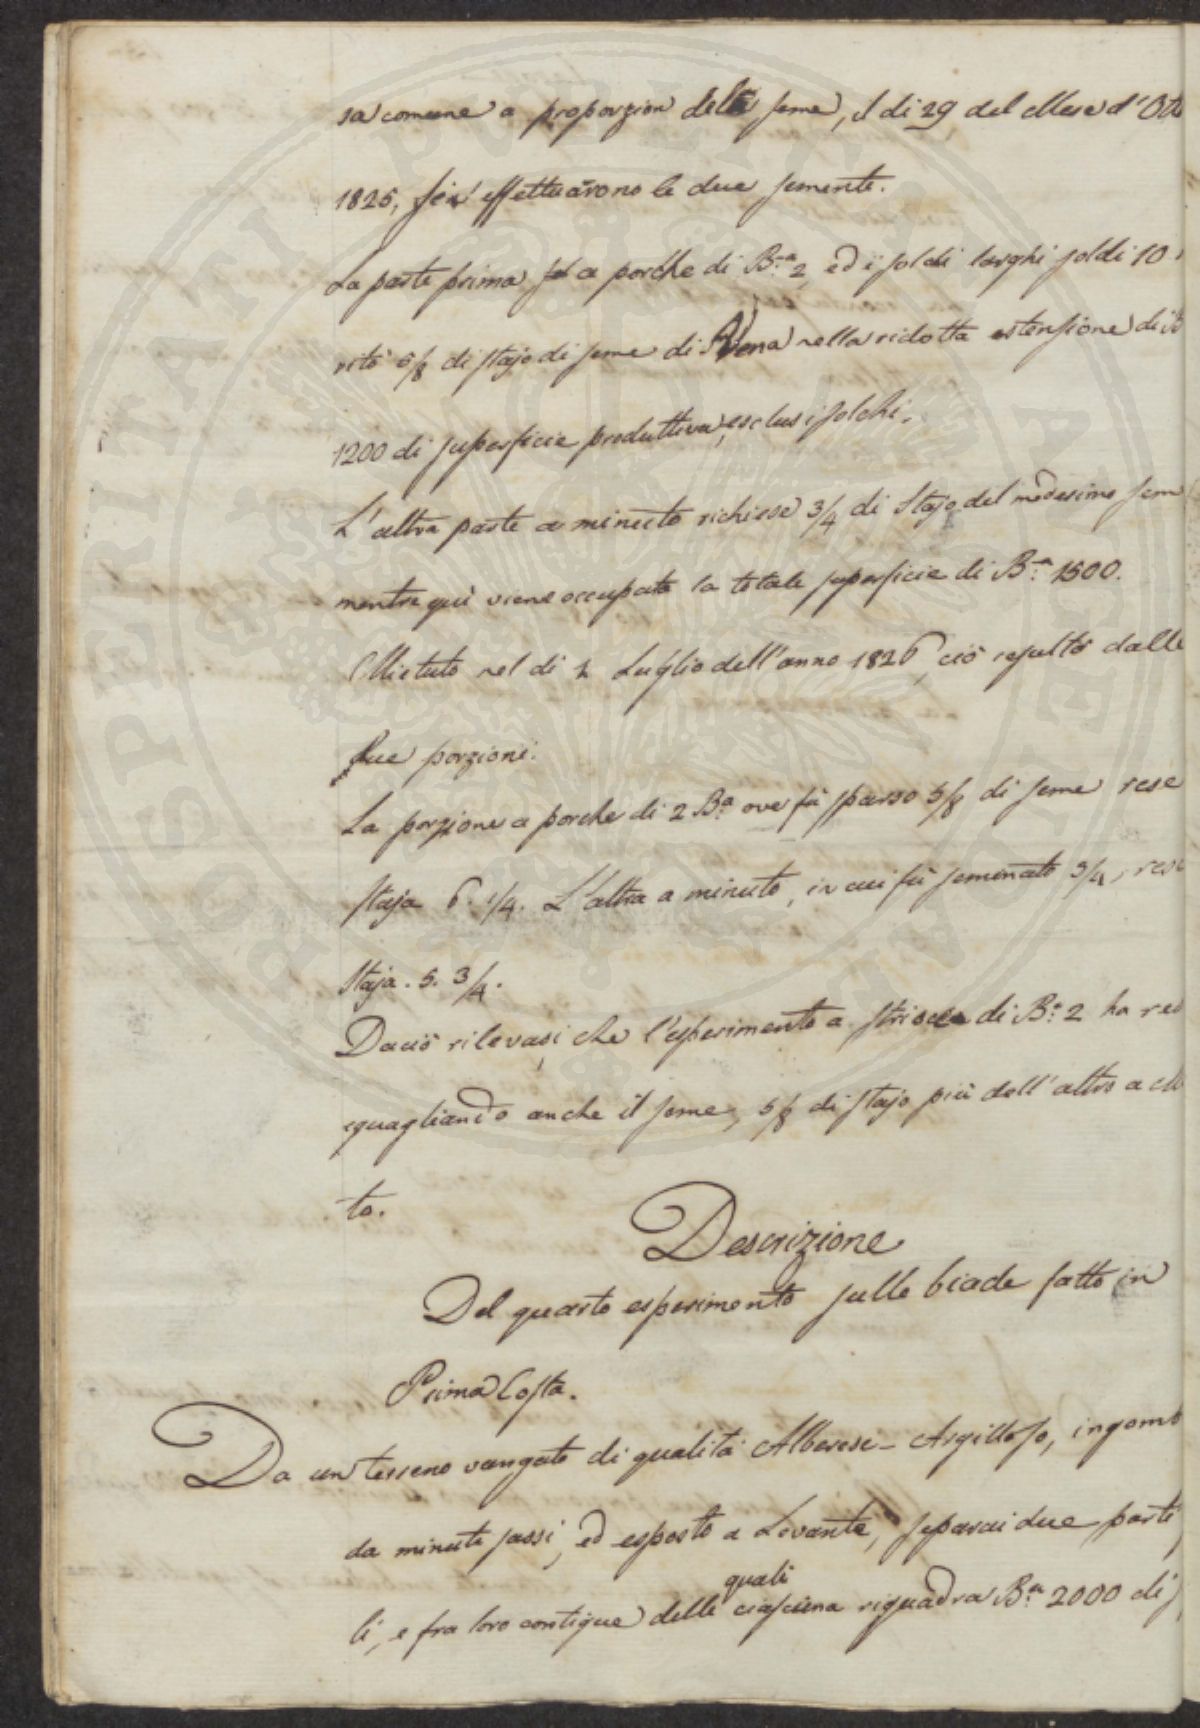 sa comune a proporzion delle seme, il di 29 del Mese d'Ott
1825, si effettuarono le due semente.
La parte prima a porche di B.ª 2 ed i solchi larghi soldi 10
ritò 5/8 di stajo di seme di Vena nella ridotta estensione di
1200 di superficie produttiva, esclusi i solchi.
L'altra parte a minuto richiese 3/4 di Stajo del medesimo sem
mentre quì viene occupata la totale superficie di B.ª 1500.
Mietuto nel di 2 Luglio dell'anno 1826, ciò resultò dalle
due porzioni.
La porzione a porche di 2 B.ª ove fù sparso 5/8 di seme rese
staja 6. 1/4. L'altra a minuto, in cui fù seminato 3/4, rese
Staja. 5. 3/4.
Da ciò rilevasi, che l'esperimento a striscie di B.ª 2 ha re
eguagliando anche il seme, 5/8 di stajo più dell'altro a
to.
Descrizione
Del quarto esperimento sulle biade fatto in
Prima Costa.
Da un terreno vangato di qualità Alberese-Argilloso, ingomb
da minuti sassi, ed esposto a Levante, separai due parti
quali
li, e fra loro contigue delle ciascuna riquadra B.ª 2000 di
PROSPERITATI PUBLICAE AUGENDAE